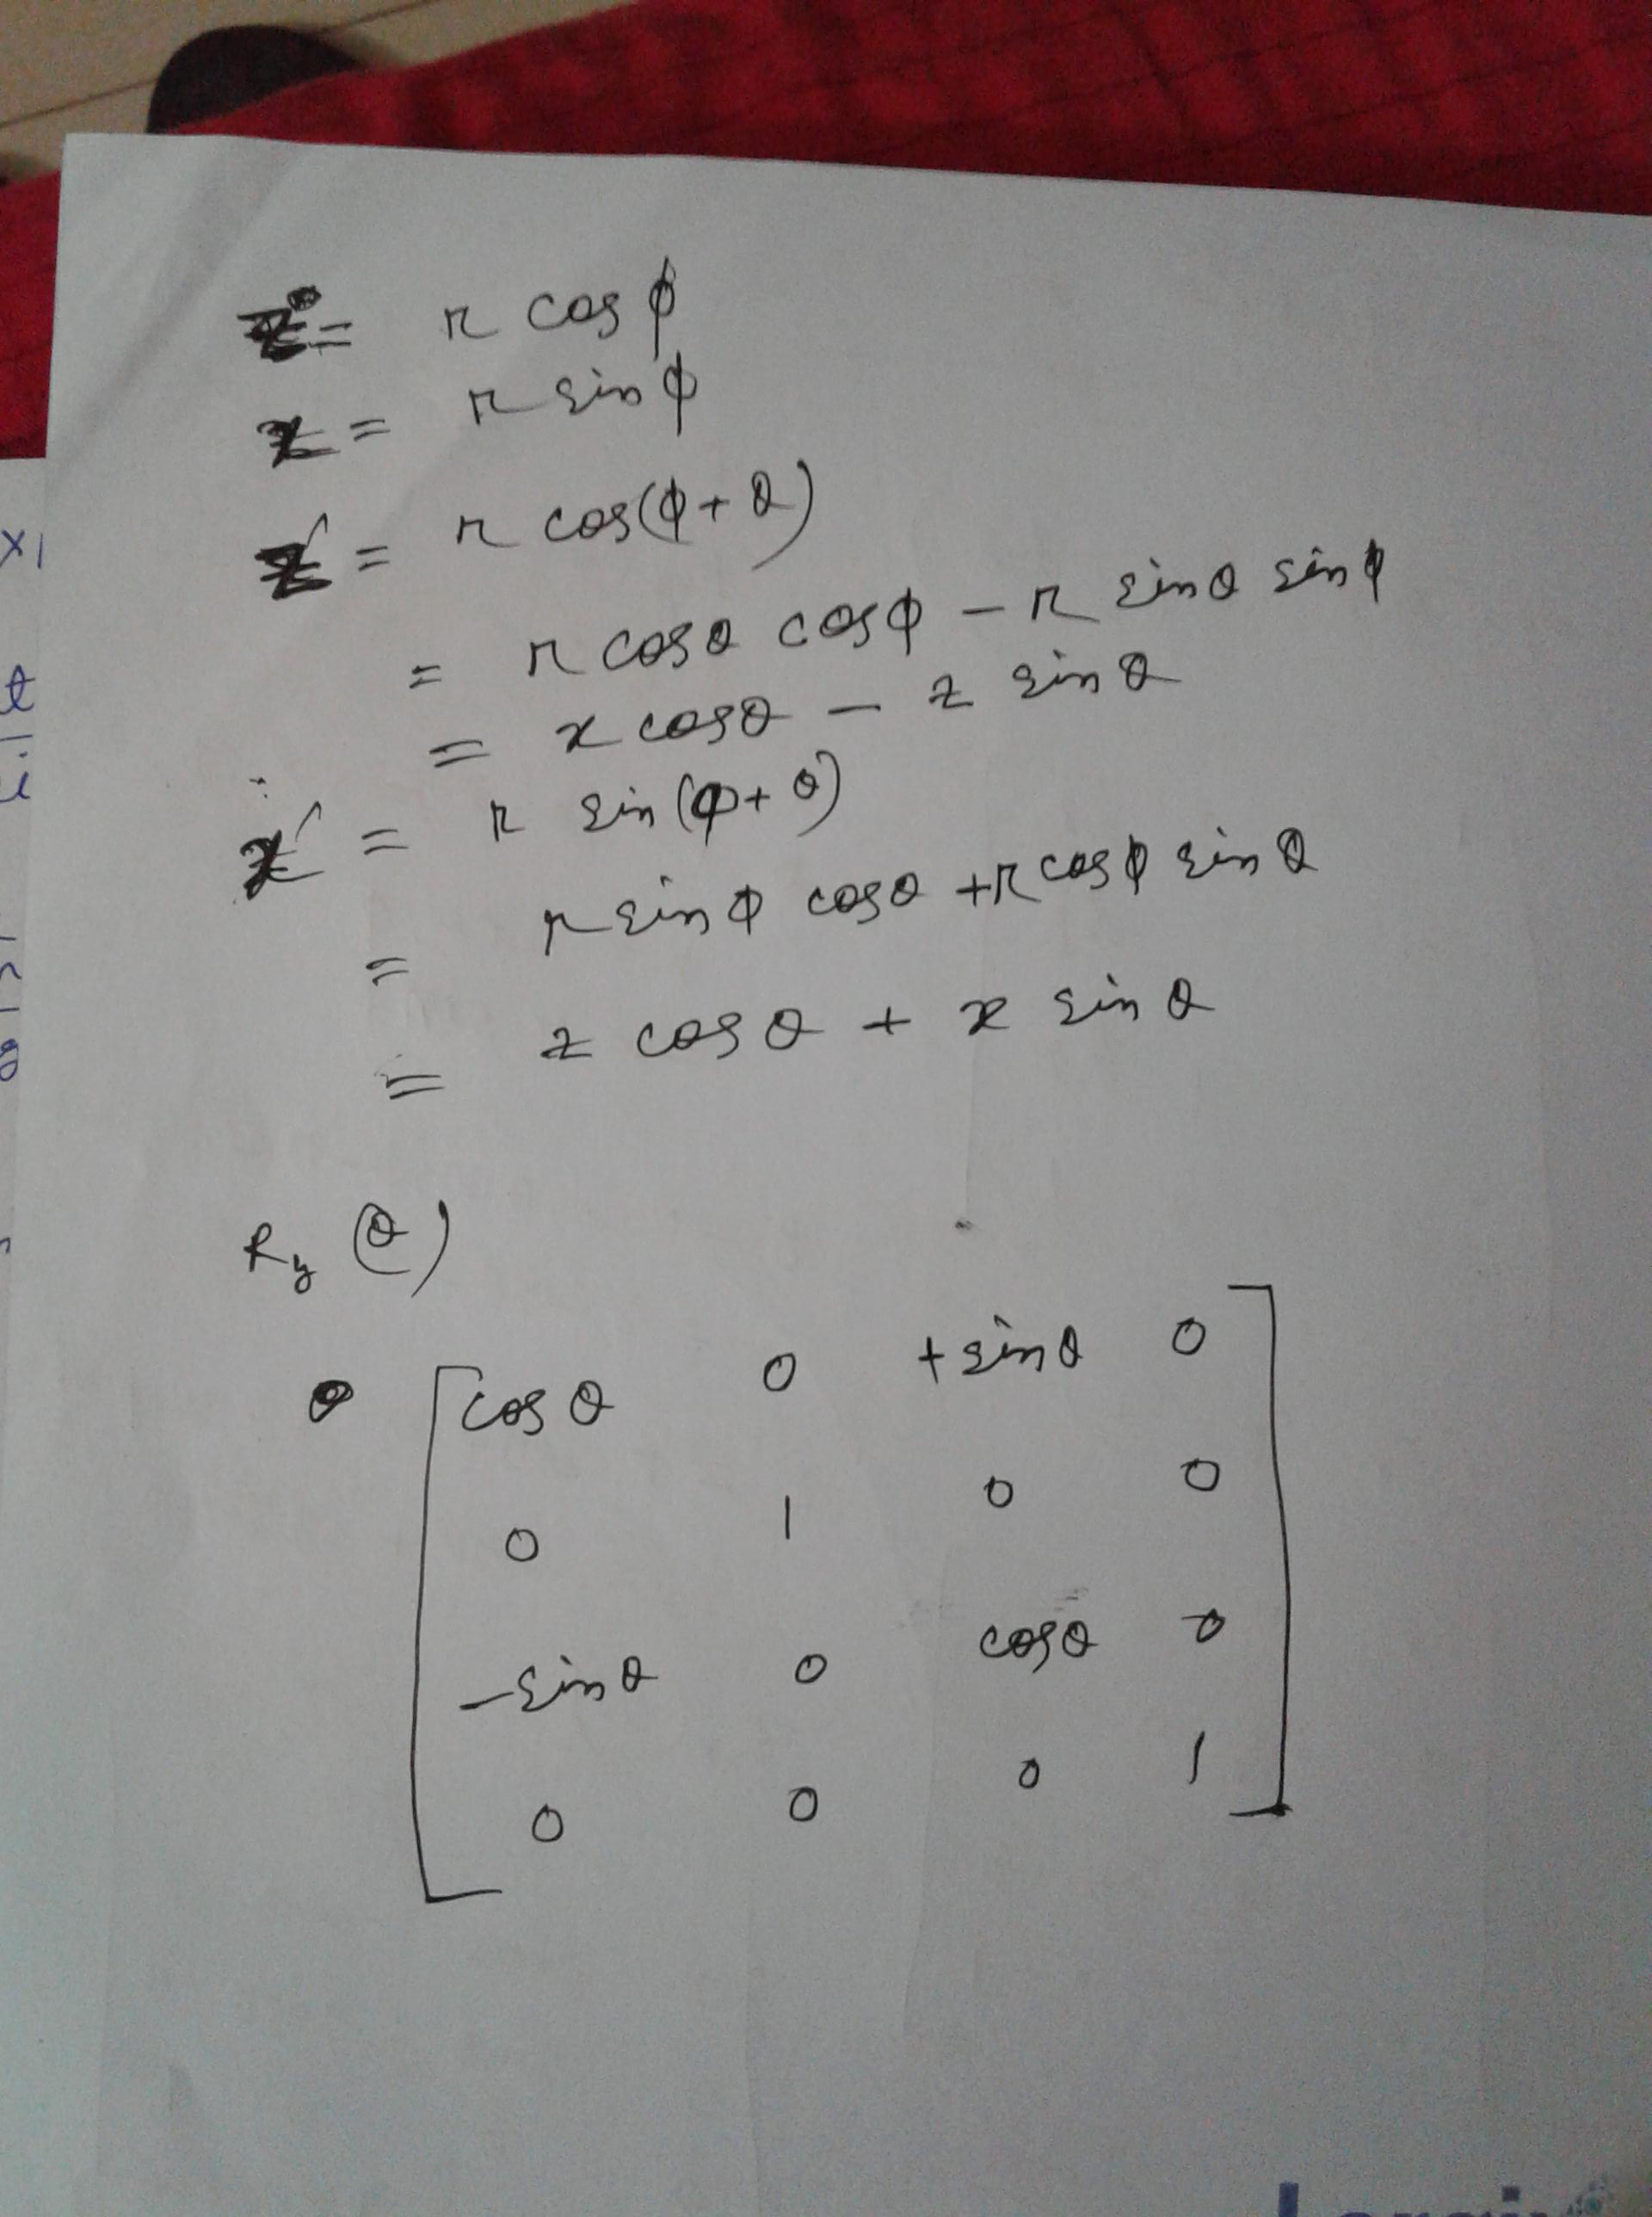 z = r cos φ
x = r sin φ
z′ = r cos(φ + θ)
= r cosθ cosφ – r sinθ sinφ
= x cosθ – z sinθ
x′ = r sin(φ + θ)
= r sinφ cosθ + r cosφ sinθ
= z cosθ + x sinθ
Ry (θ)
cosθ 0 +sinθ 0
0 1 0 0
–sinθ 0 cosθ 0
0 0 0 1